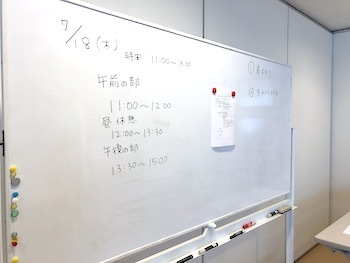 7/18(木)
時間 11:00〜15:00
午前の部
11:00〜12:00
昼休憩
12:00〜13:30
午後の部
13:30〜15:00
①
②